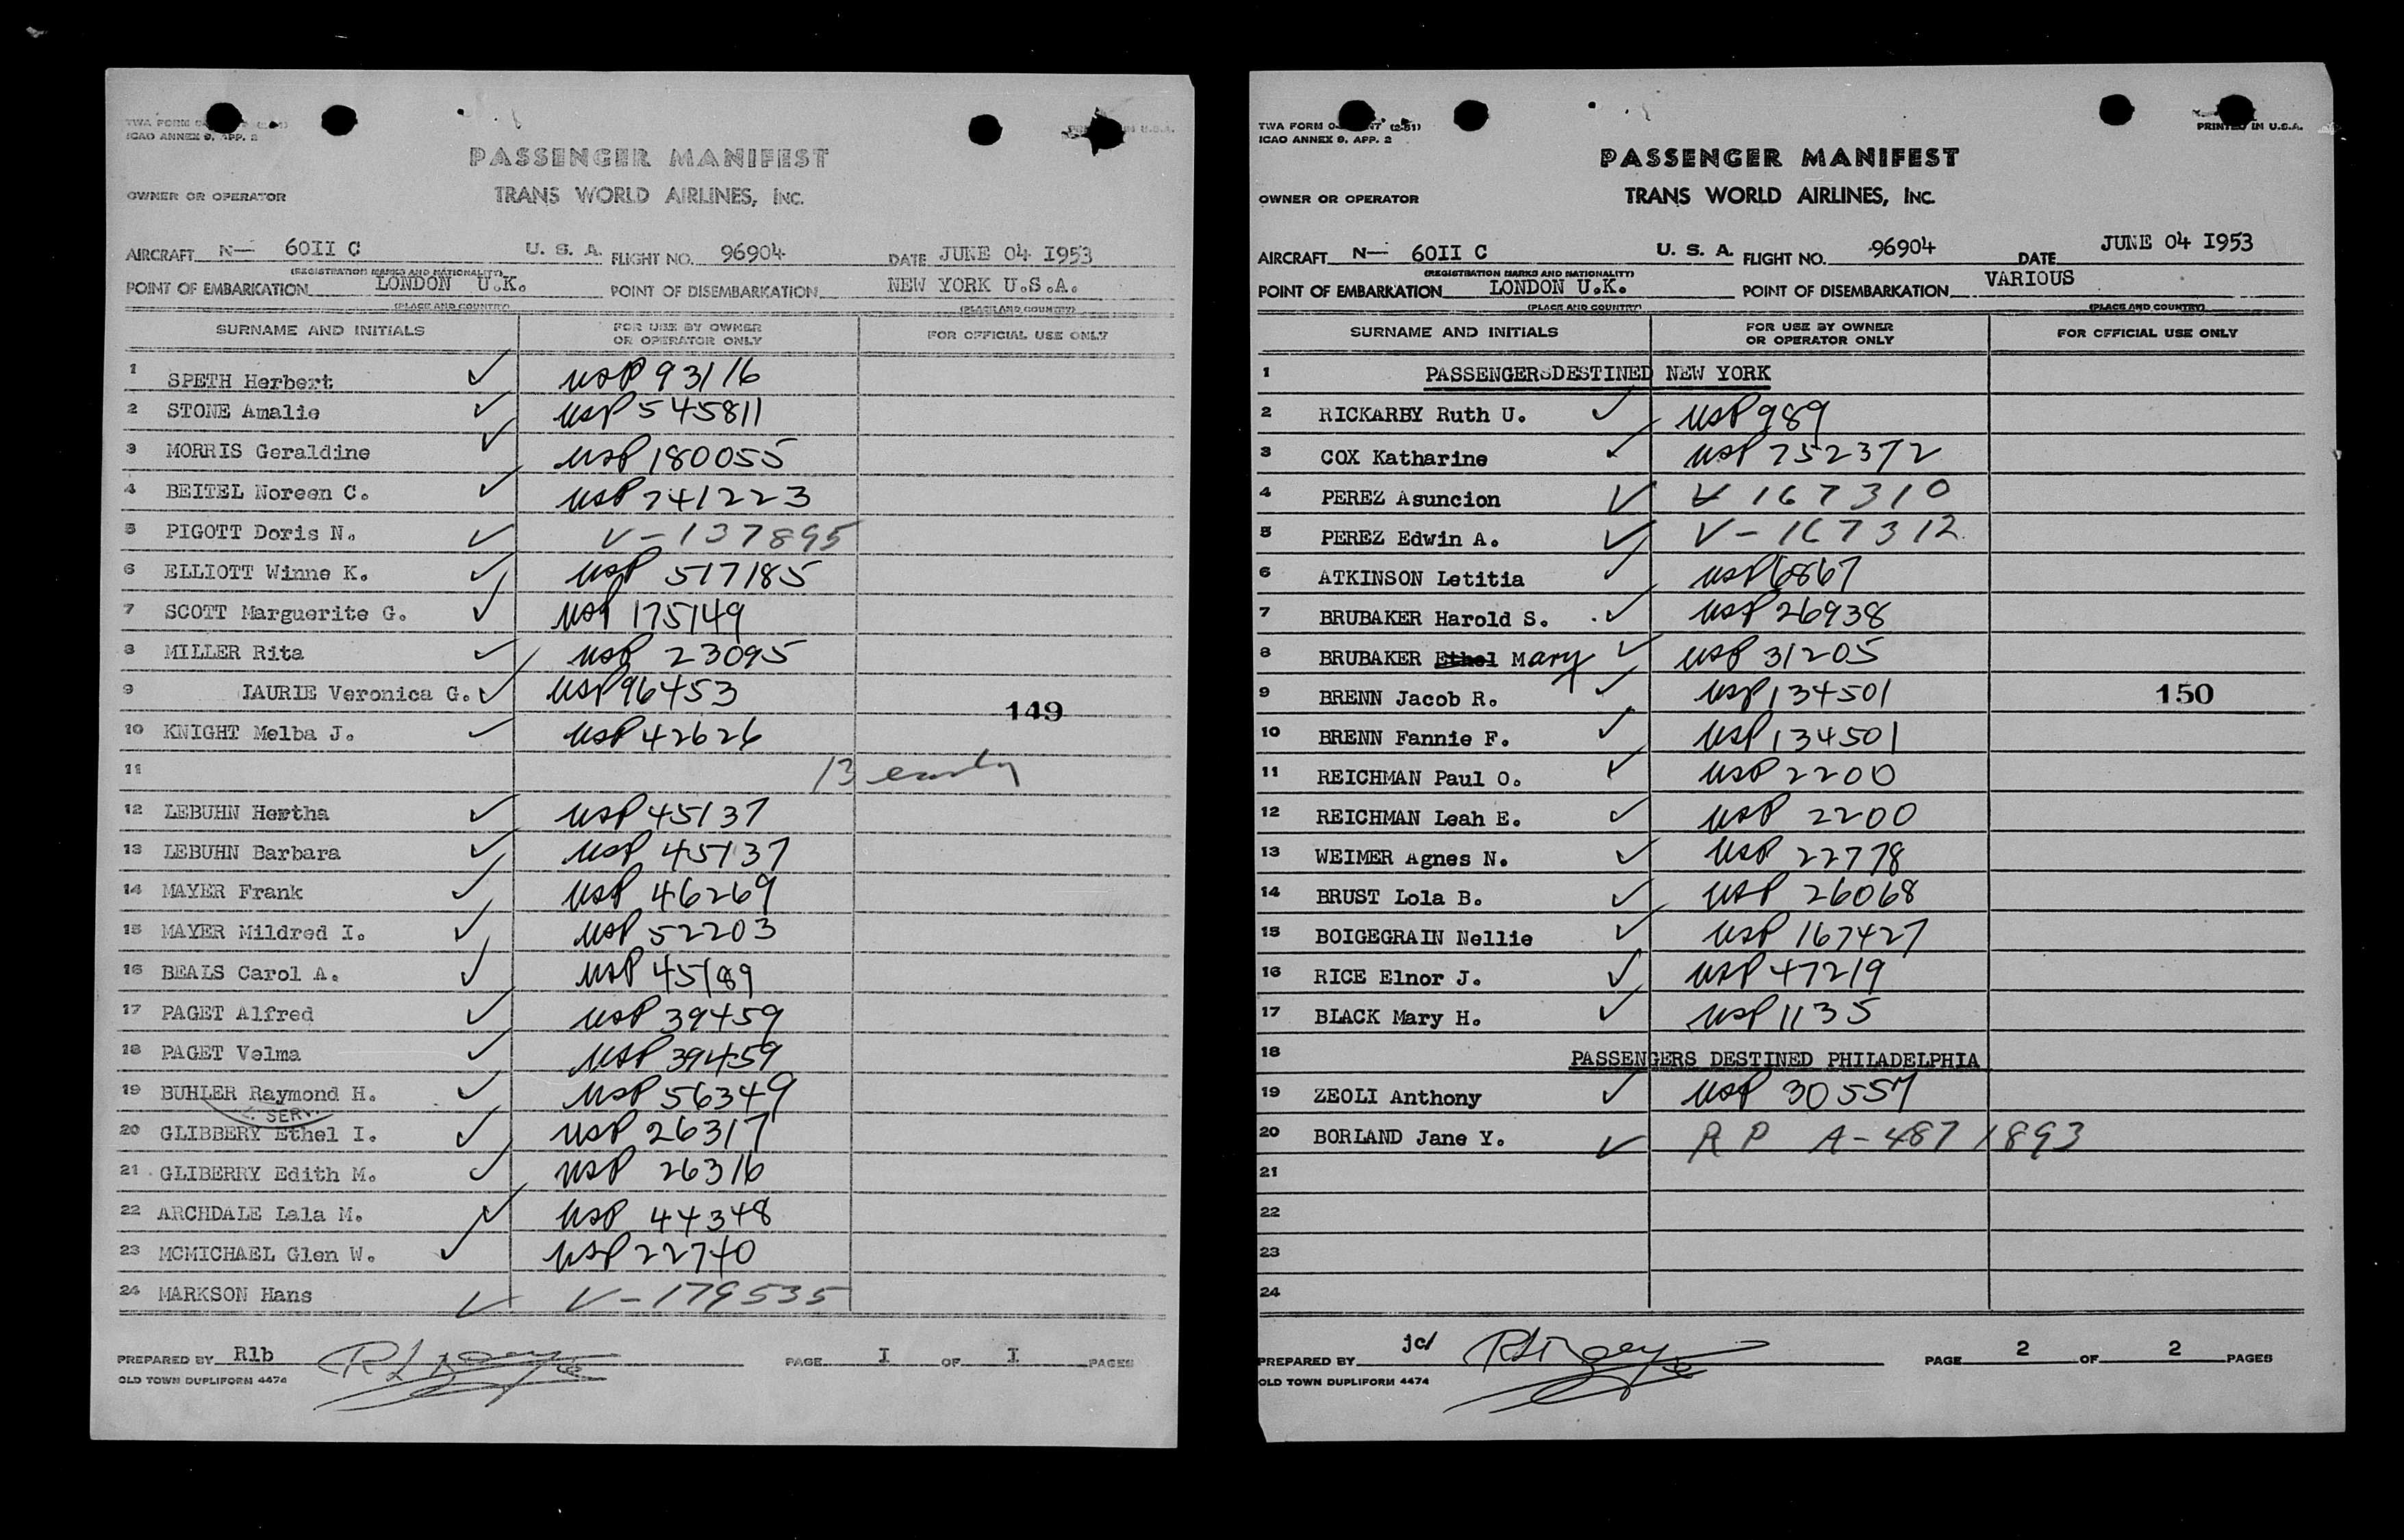 TWA FORM
ICAO ANNEX 9, APP. 2
PRINTED IN U.S.A.
PASSENGER MANIFEST
OWNER OR OPERATOR TRANS WORLD AIRLINES, INC.
AIRCRAFT N— 60II C U. S. A. FLIGHT NO. 96904 DATE JUNE 04 I953
(REGISTRATION MARKS AND NATIONALITY)
POINT OF EMBARKATION LONDON U.K. POINT OF DISEMBARKATION NEW YORK U.S.A.
(PLACE AND COUNTRY) (PLACE AND COUNTRY)
SURNAME AND INITIALS FOR USE BY OWNER OR OPERATOR ONLY FOR OFFICIAL USE ONLY
1 SPETH Herbert ✓ USP 93116
2 STONE Amalie ✓ USP 545811
3 MORRIS Geraldine ✓ USP 180055
4 BEITEL Noreen C. ✓ USP 741223
5 PIGOTT Doris N. ✓ V-137895
6 ELLIOTT Winne K. ✓ USP 517185
7 SCOTT Marguerite G. ✓ USP 175149
8 MILLER Rita ✓ USP 23095
9 LAURIE Veronica G. ✓ USP 96453
149
10 KNIGHT Melba J. ✓ USP 42626
11 13 early
12 LEBUHN Hertha ✓ USP 45137
13 LEBUHN Barbara ✓ USP 45137
14 MAYER Frank ✓ USP 46269
15 MAYER Mildred I. ✓ USP 52203
16 BEALS Carol A. ✓ USP 45189
17 PAGET Alfred ✓ USP 39459
18 PAGET Velma ✓ USP 39459
19 BUHLER Raymond H. ✓ USP 56349
SERV.
20 GLIBBERY Ethel I. ✓ USP 26317
21 GLIBERRY Edith M. ✓ USP 26316
22 ARCHDALE Lala M. ✓ USP 44348
23 MCMICHAEL Glen W. ✓ USP 22740
24 MARKSON Hans ✓ V-179535
PREPARED BY Rlb PAGE I OF I PAGES
OLD TOWN DUPLIFORM 4474
TWA FORM INT (2-51)
ICAO ANNEX 9, APP. 2
PRINTED IN U.S.A.
PASSENGER MANIFEST
OWNER OR OPERATOR TRANS WORLD AIRLINES, INC.
AIRCRAFT N— 60II C U. S. A. FLIGHT NO. 96904 DATE JUNE 04 I953
(REGISTRATION MARKS AND NATIONALITY)
POINT OF EMBARKATION LONDON U.K. POINT OF DISEMBARKATION VARIOUS
(PLACE AND COUNTRY) (PLACE AND COUNTRY)
SURNAME AND INITIALS FOR USE BY OWNER OR OPERATOR ONLY FOR OFFICIAL USE ONLY
1 PASSENGERS DESTINED NEW YORK
2 RICKARBY Ruth U. ✓ USP 989
3 COX Katharine ✓ USP 752372
4 PEREZ Asuncion ✓ V 167310
5 PEREZ Edwin A. ✓ V-167312
6 ATKINSON Letitia ✓ USP 6867
7 BRUBAKER Harold S. ✓ USP 26938
8 BRUBAKER Ethel Mary ✓ USP 31205
9 BRENN Jacob R. ✓ USP 134501 150
10 BRENN Fannie F. ✓ USP 134501
11 REICHMAN Paul O. ✓ USP 2200
12 REICHMAN Leah E. ✓ USP 2200
13 WEIMER Agnes N. ✓ USP 22778
14 BRUST Lola B. ✓ USP 26068
15 BOIGEGRAIN Nellie ✓ USP 167427
16 RICE Elnor J. ✓ USP 47219
17 BLACK Mary H. ✓ USP 1135
18 PASSENGERS DESTINED PHILADELPHIA
19 ZEOLI Anthony ✓ USP 30557
20 BORLAND Jane Y. ✓ RP A-4871893
21
22
23
24
PREPARED BY jcl PAGE 2 OF 2 PAGES
OLD TOWN DUPLIFORM 4474